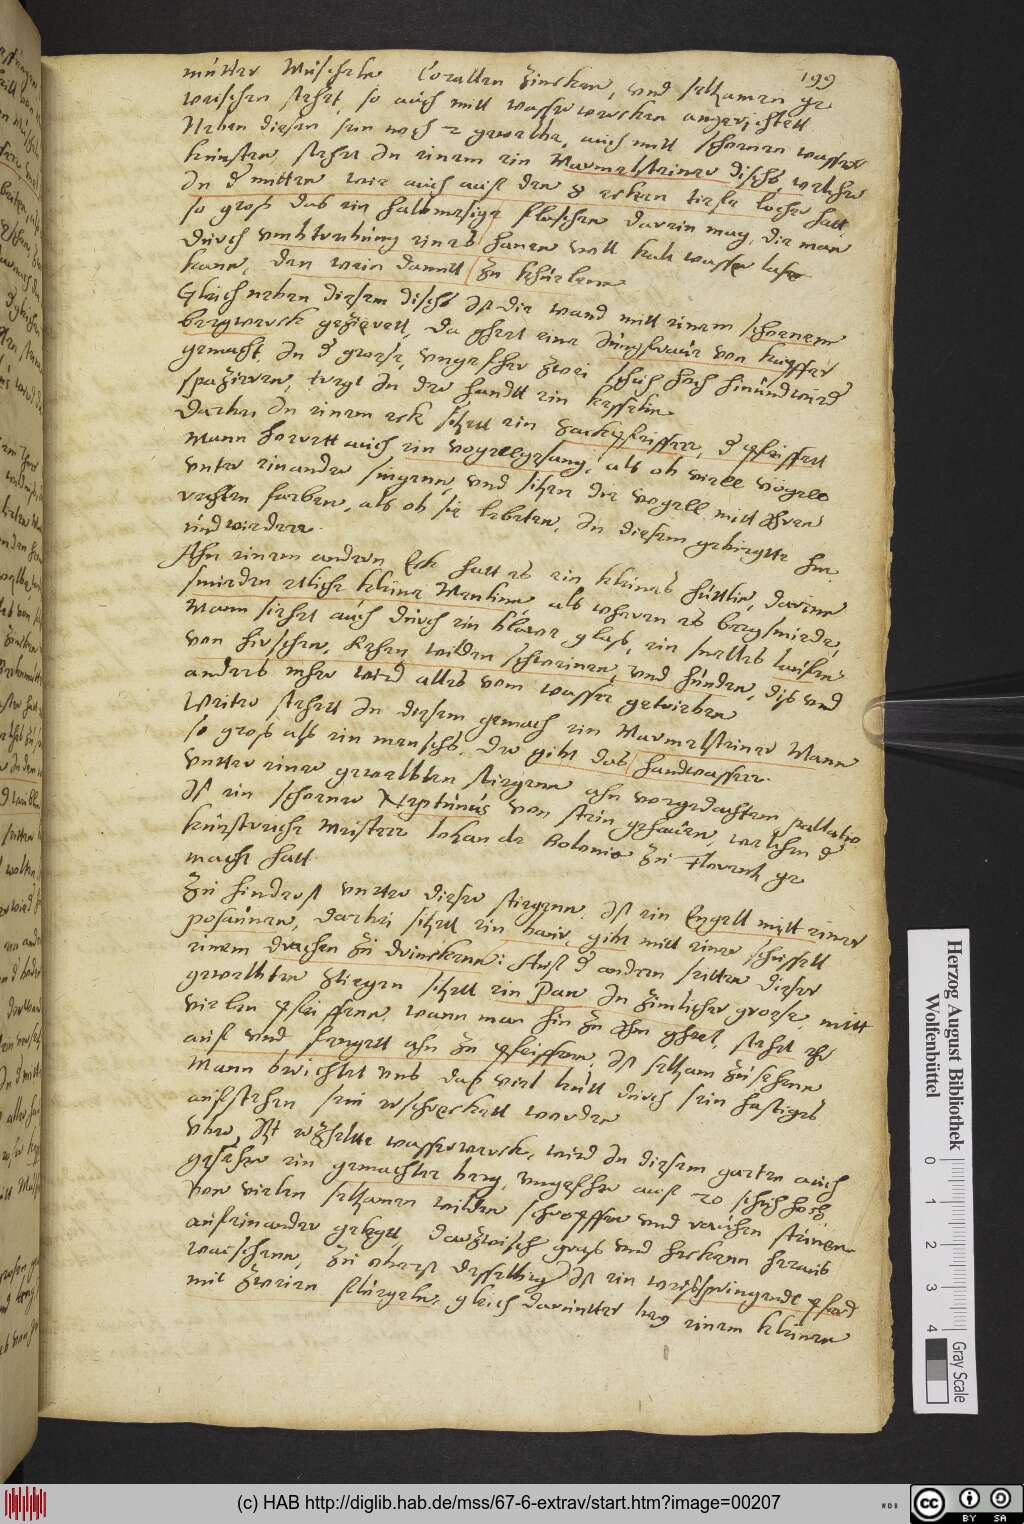 199
mutter Muscheln Corallen Zincken, vnd seltzamen ge
wechsen stehet, so auch mitt wasserwercken angerichtett
Neben diesem sein noch 2 gewelbe, auch mitt schoenen wasser
kunsten, stehet In einem ein Marmelsteiner disch, welcher
In d mitten wie auch auf den 8 ecken tiefe locher hatt
so gros das ein halbmesige flaschen darein mag, die man
durch vmbtreibung eines hanen voll kalt wasser lasse
kann, den wein damitt zu khüelenn
Gleich neben diesem disch Ist die wand mitt einem schoenem
bergwerck gezierett, da ghet eine Jungfrauw von kupffer
gemacht, In d groese, vngefehr zwei schuch hoch hinundwid
spazieren, tregt In der handt ein kesselin
Darbei In einem eck sitzett ein sackpfeiffer, d pfeiffett
Mann horett auch ein vogellgesang, als ob viell vögell
vnter einander singenn, vnd sitzen die vogell mitt Ihren
rechten farben, als ob sie lebeten, In diesem gebirgtte hin
undwiderr
Ahn einem andern Eck hatt es ein kleines hüttlin, darinn
smieden etliche kleine Menlinn, als wheren es bergsmiede,
Mann siehet auch durch ein klores glaß, ein snelles lauffen
von hirschen, Rehen wilden schweinen, vnd hunden, diß vnd
anders mher wird alles vom wasser getrieben
Weiter stehett In diesem gemach ein Marmelsteiner Mann
so groß alß ein mensch, der gibt das handwasserr
Vntter einer gewelbten stiegenn ahn vorgedachtem pallatio
Ist ein schoener Neptunus von stein gehauen, welchen d
kunstreiche Meisterr Johan de Bolonia zu Florentz ge
macht hatt
Zu hinderst vnter dieser stiegenn Ist ein Engell mitt einer
posaunen, darbei sitzett ein baur, gibt mitt einer schussell
einem drachen zu drinckenn: Auf d andern seitten dieser
gewelbten stiegen sitzett ein Pan In zimlicher groese, mitt
vielen pfeiffenn, wann man hin zu Ihm ghet, stehet ehr
auf vnd fengett ahn zu pfeiffenn, Ist seltzam zusehenn
Mann berichtet vns daß viel leutt durch sein hastiges
aufstehen sein erschreckett worden
Vber Itzt erzhelte wasserwerck, wird In diesem garten auch
gesehen ein gemachter berg, vngefehr auf 20 schuch hoch
von vielen seltzamen wilden schroffen vnd rauhen steinen
aufeinander gelegtt, darzwisch graß vnd heckenn heraus
wachsenn, zu oberst desselbing Ist ein weisspringende pferd
mit zweien flügeln, gleich darunter bey einem kleinen
Herzog August Bibliothek
Wolfenbüttel
0 1 2 3 4
Gray Scale
(c) HAB http://diglib.hab.de/mss/67-6-extrav/start.htm?image=00207
WDB
cc BY SA